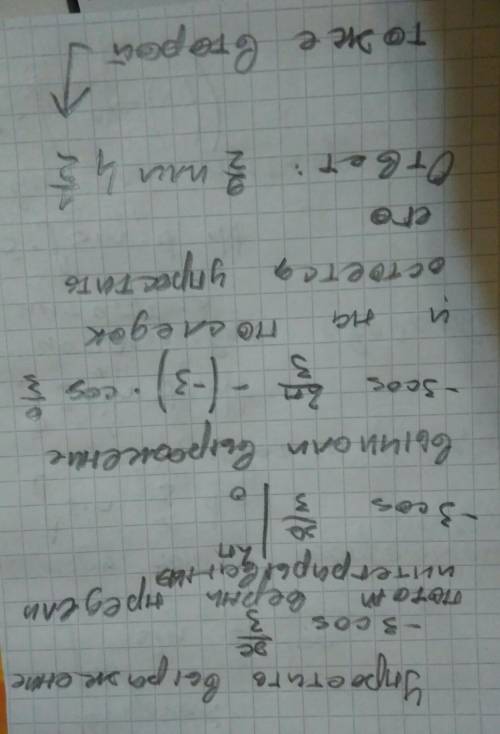 Упростить выражение
-3 cos x/3
потом верни пределы
интегрирования
-3 cos x/3 | 2π 0
вычисли выражение
-3cos 2π/3 - (-3) · cos 0/3
и на последок
остоется упростить
его
Ответ: 9/2 или 4 1/2
тоже второй